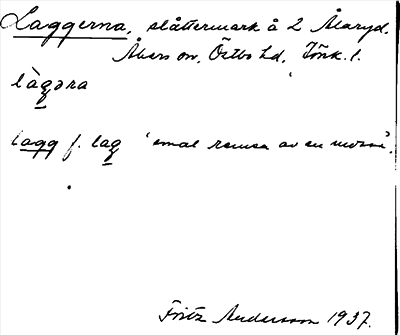 Laggerna, slåttermark å 2 Ålaryd,
Åkers sn, Östbo hd, Jönk. l.
làgəra
lagg f. lag 'smal remsa av en mosse'.
Fritz Andersson 1937.